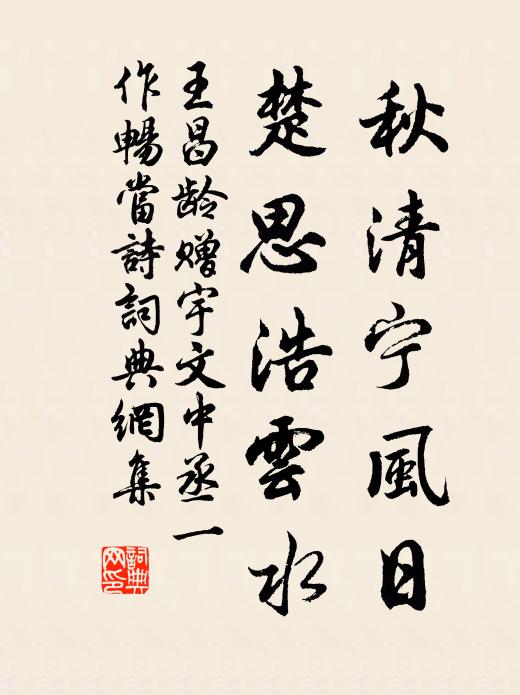 秋清宁風日
楚思浩雲水
王昌龄赠宇文中丞一
作暢當詩詞典網集
詞典网印